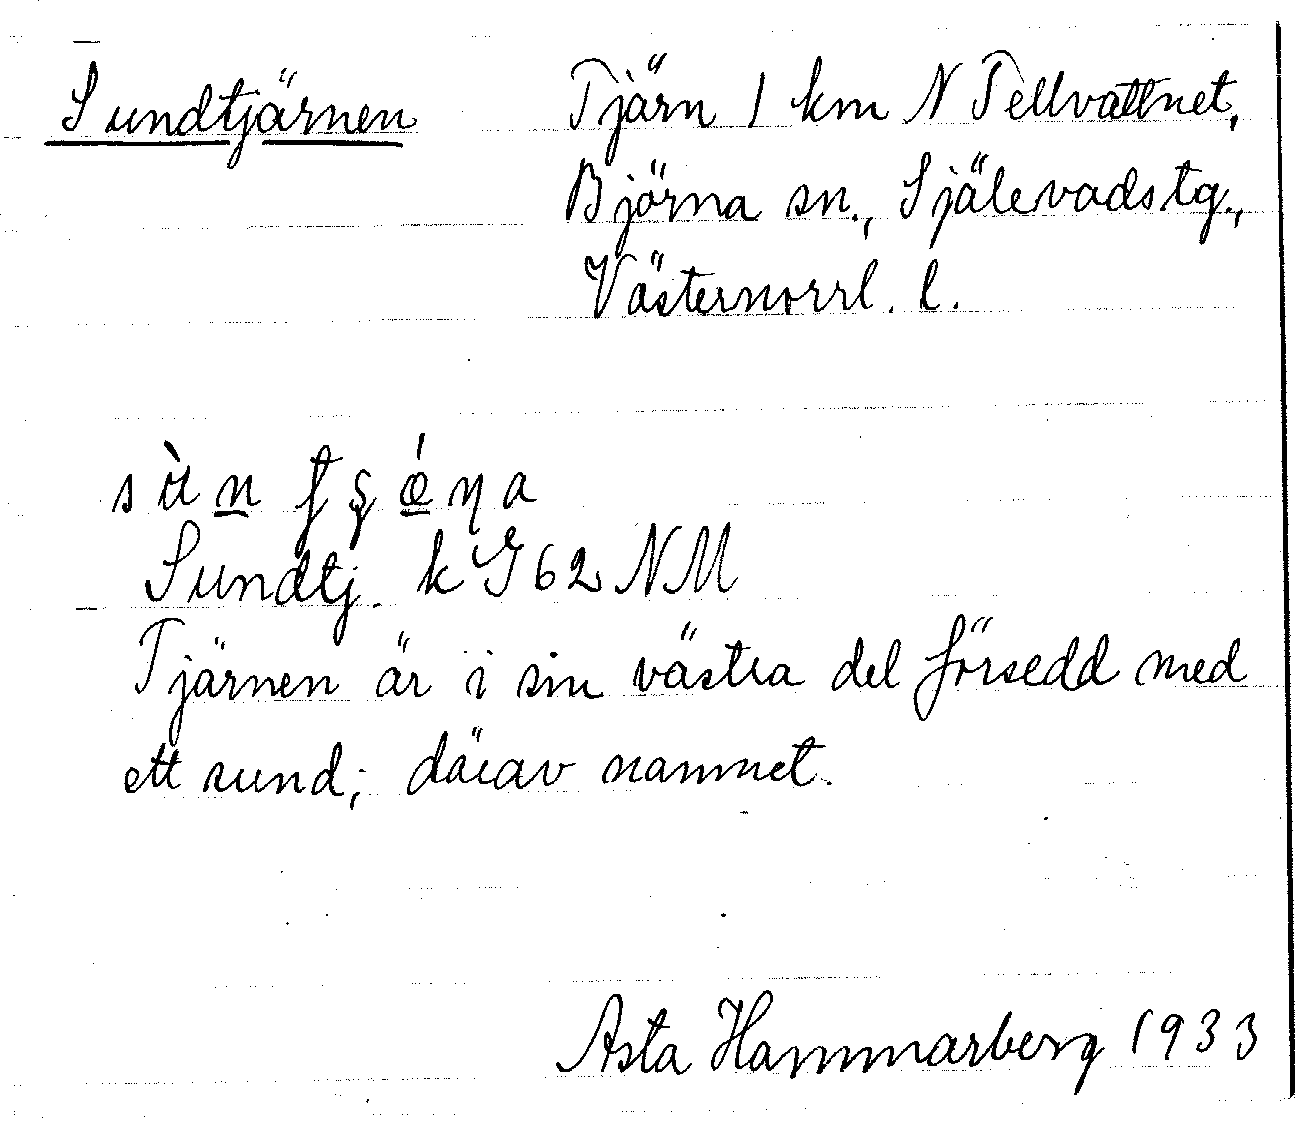 Sundtjärnen
Tjärn 1 km N Tellvattnet,
Björna sn., Själevads tg.,
Västernorrl. l.
Sundtj. k G 62 NM
Tjärnen är i sin västra del försedd med
ett sund; därav namnet.
Asta Hammarberg 1933